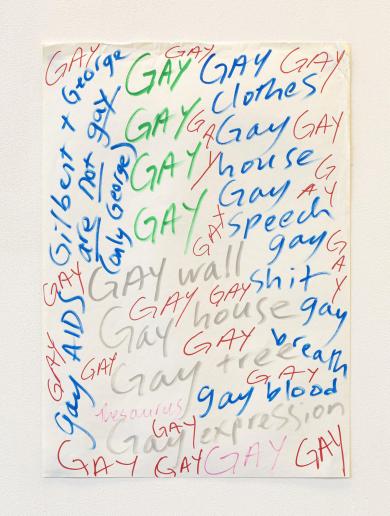 GAY
GAY
GAY
GAY
GAY
GAY
GAY
GAY
clothes
Gay
house
Gay
speech
gay
shit
gay
breath
gay blood
GAY
GAY
GAY
GAY
GAY
Gilbert + George
are not gay
(only George)
gay AIDS
GAY wall
Gay house
Gay tree
Gay expression
GAY
GAY
GAY
GAY
GAY
GAY
GAY
thesaurus
GAY
GAY
GAY
GAY
GAY